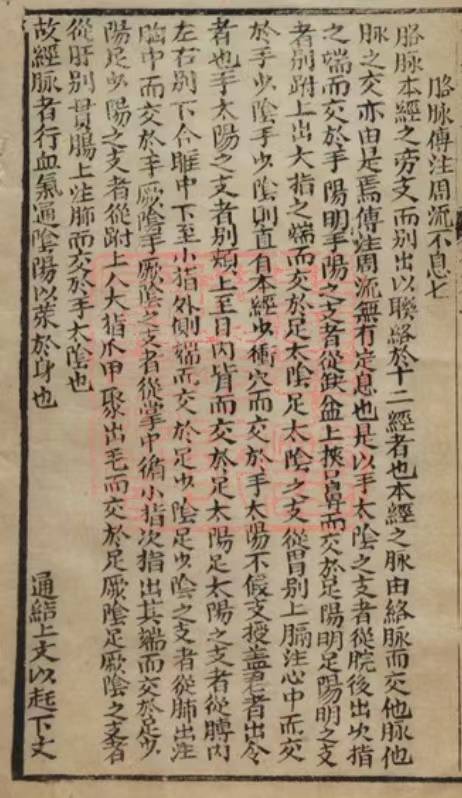 胳脉傳注周流不息七
胳脉本經之旁支而別出以聯絡於十二經者也本經之脉由絡脉而交他脉他
脉之交亦由是焉傳注周流無有定息也是以手太陰之支者從腕後出次指
之端而交於手陽明手陽之支者從缺盆上挾口鼻而交於足陽明足陽明之支
者別跗上出大指之端而交於足太陰足太陰之支從胃別上膈注心中而交
於手少陰手少陰則直自本經少衝穴而交於手太陽不假支授盖君者出令
者也手太陽之支者別頰上至目內眥而交於足太陽足太陽之支者從膊內
左右別下合䐃中下至小指外側端而交於足少陰足少陰之支者從肺出注
胸中而交於手厥陰手厥陰之支者從掌中循小指次指出其端而交於足少
陽足少陽之支者從跗上入大指爪甲聚出毛而交於足厥陰足厥陰之支者
從肝別貫膈上注肺而交於手太陰也
故經脉者行血氣通陰陽以荣於身也
通結上文以起下文